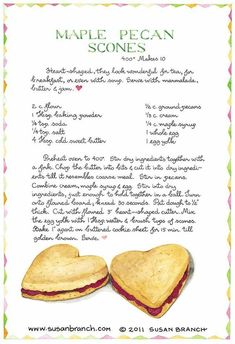 MAPLE PECAN
SCONES
400° Makes 10
Heart-shaped, they look wonderful for tea, for
breakfast, or even with soup. Serve with marmalade,
butter & jam. ♥
2 c. flour
1 Tbsp. baking powder
¼ tsp. soda
¼ tsp. salt
4 Tbsp. cold sweet butter
½ c. ground pecans
½ c. cream
¼ c. maple syrup
1 whole egg
1 egg yolk
Preheat oven to 400°. Stir dry ingredients together with
a fork. Chop the butter into bits & cut it into dry ingredi-
ents till it resembles coarse meal. Stir in pecans.
Combine cream, maple syrup & egg. Stir into dry
ingredients, just enough to hold together in a ball. Turn
onto floured board; knead 30 seconds. Pat dough to ½"
thick. Cut with floured 3" heart-shaped cutter. Mix
the egg yolk with 1 Tbsp water & brush tops of scones.
Bake 1" apart on buttered cookie sheet for 15 min. till
golden brown. Serve. ♥
www.susanbranch.com © 2011 SUSAN BRANCH